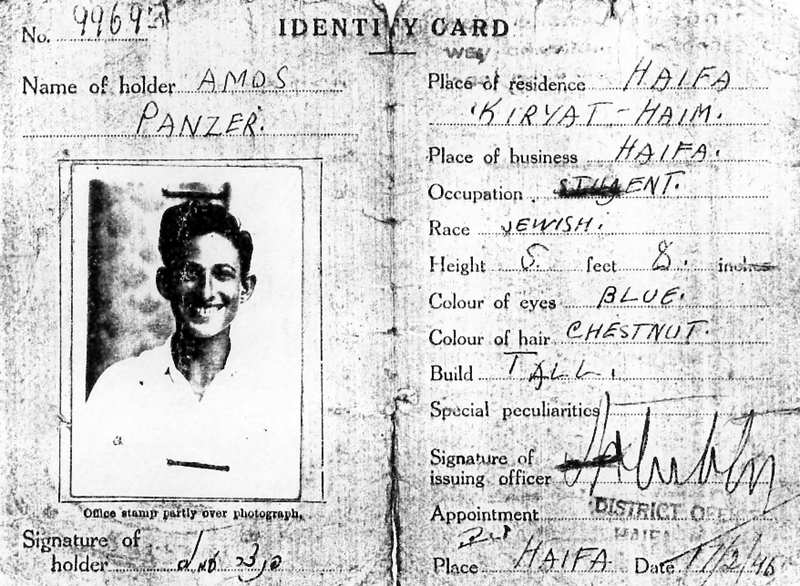 IDENTITY CARD
No. 9969
Name of holder AMOS
PANZER.
Office stamp partly over photograph.
Signature of
holder
Place of residence HAIFA
KIRYAT-HAIM.
Place of business HAIFA.
Occupation STUDENT.
Race JEWISH.
Height 5 feet 8. inches
Colour of eyes BLUE.
Colour of hair CHESTNUT.
Build TALL.
Special peculiarities
Signature of
issuing officer
Appointment DISTRICT OFFICER
HAIFA
Place HAIFA Date 17/2/46